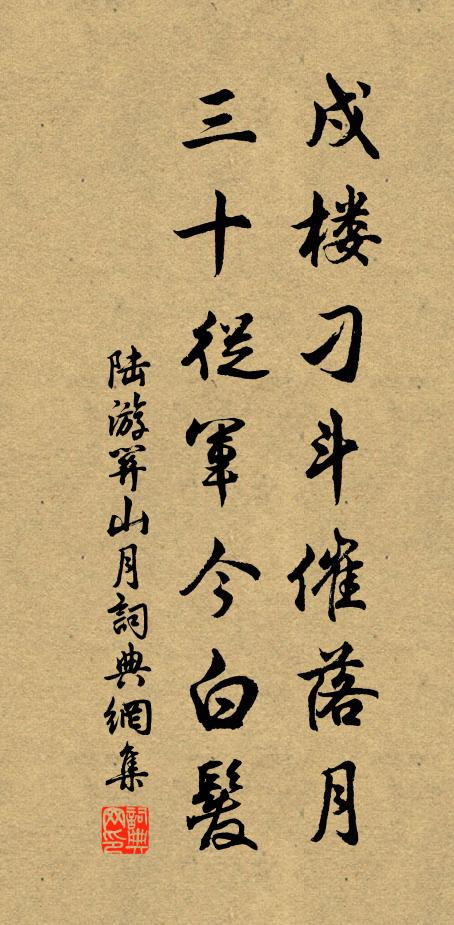 戍楼刁斗催落月
三十從軍今白髮
陆游關山月詞典網集
詞典网印